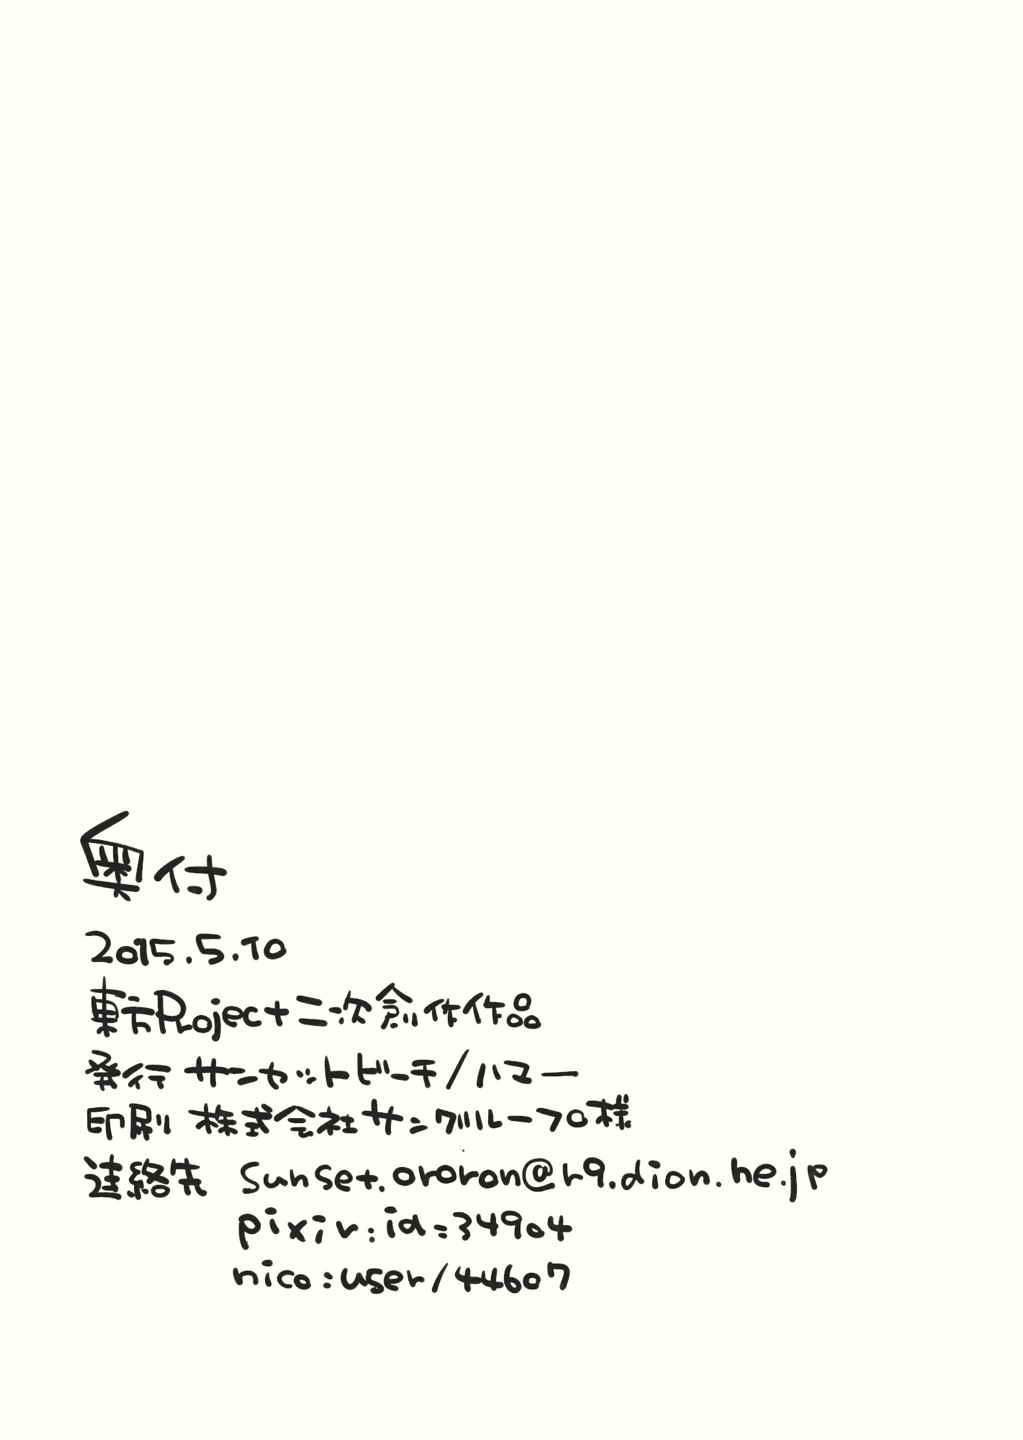 奥付
2015.5.10
東方Project二次創作作品
発行 サンセットビーチ/ハマー
印刷 株式会社サングループ様
連絡先 sunset.ororon@r9.dion.ne.jp
pixiv:id=34904
nico:user/44607